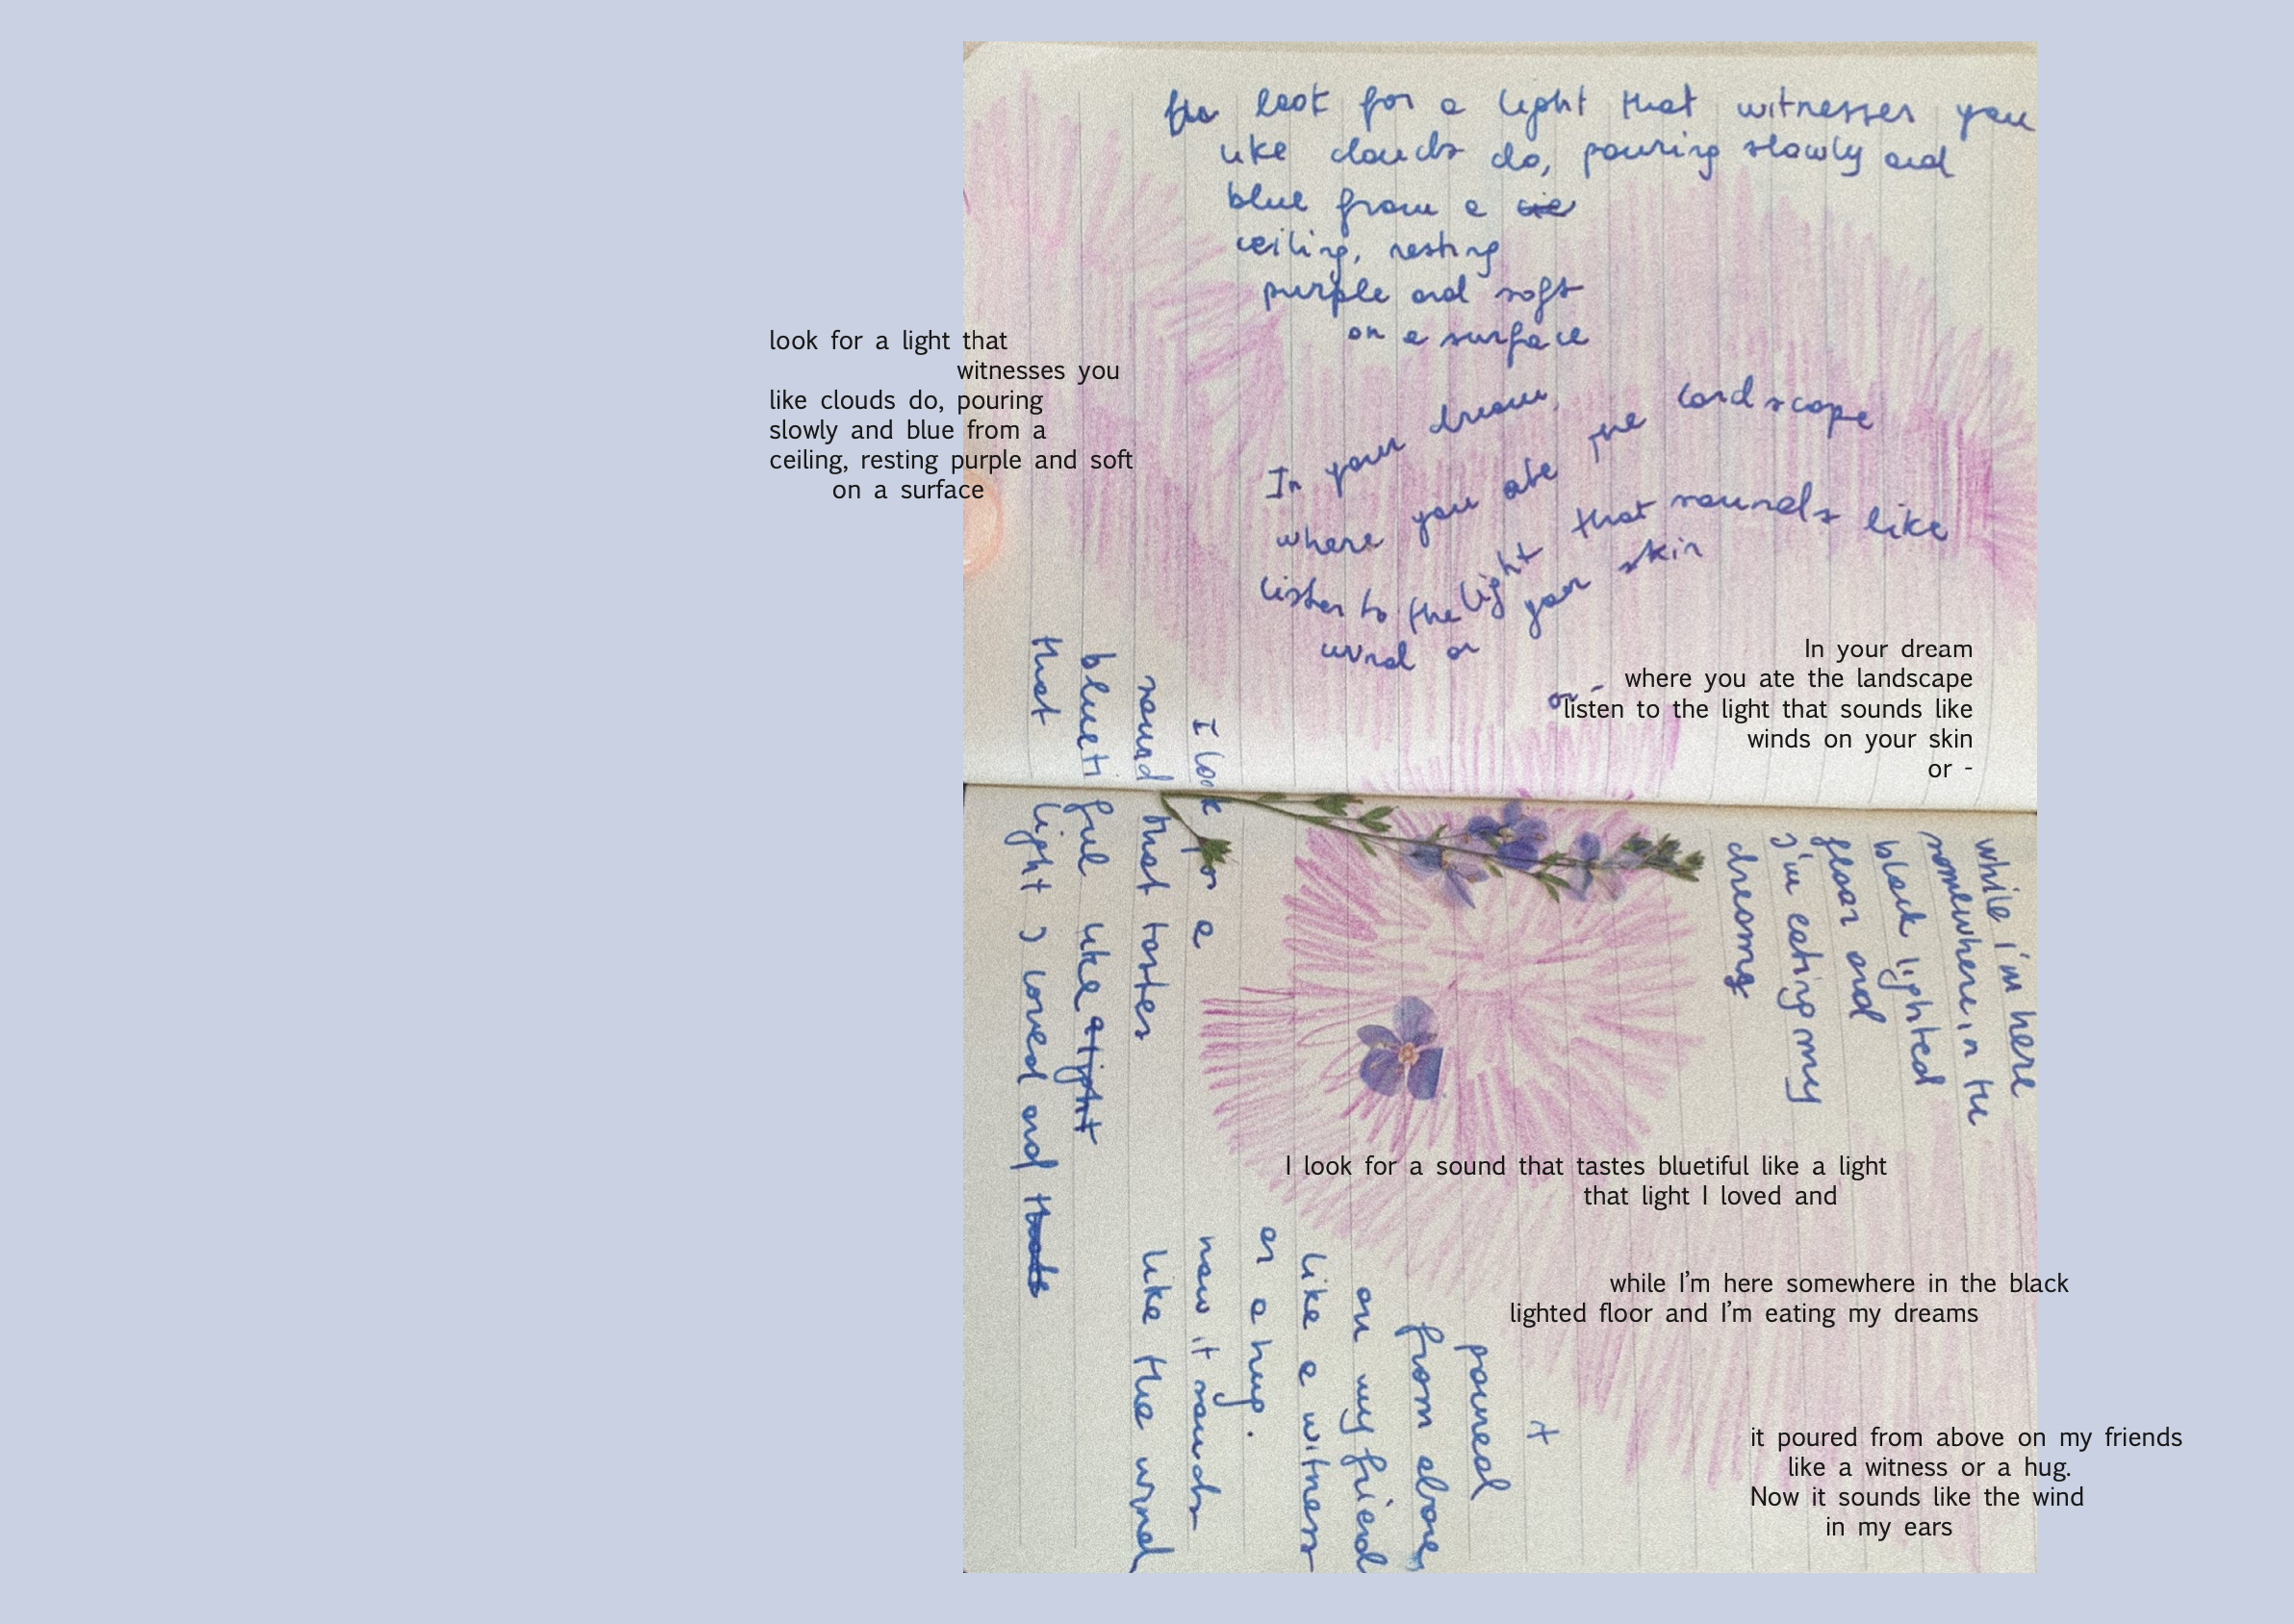 look for a light that witnesses you
like clouds do, pouring slowly and
blue from a
ceiling, resting
purple and soft
on a surface
look for a light that
witnesses you
like clouds do, pouring
slowly and blue from a
ceiling, resting purple and soft
on a surface
In your dream,
where you ate the landscape
listen to the light that sounds like
wind on your skin
or -
In your dream
where you ate the landscape
listen to the light that sounds like
winds on your skin
or -
I look for a
sound that tastes
blueti ful like a light
that light I loved and
while i'm here
somewhere in the
black lighted
floor and
I'm eating my
dreams
I look for a sound that tastes bluetiful like a light
that light I loved and
while I’m here somewhere in the black
lighted floor and I’m eating my dreams
it
poured
from above
on my friend
like a witness
or a hug.
now it sounds
like the wind
it poured from above on my friends
like a witness or a hug.
Now it sounds like the wind
in my ears